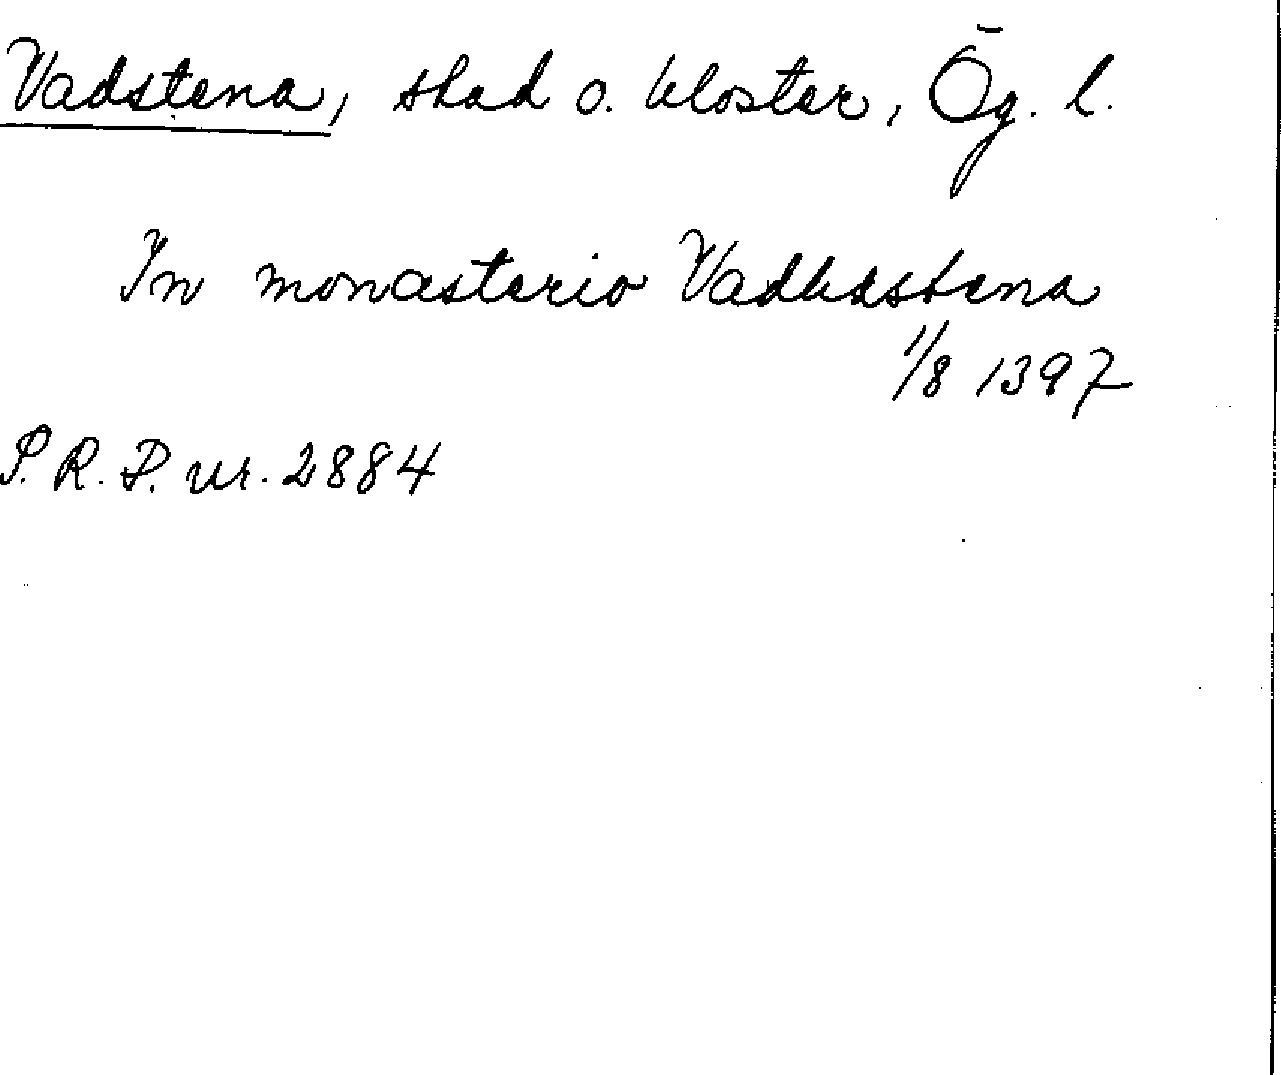 Vadstena, stad o. kloster, Ög. l.
In monasterio Vadhestena
1/8 1397
P. R. P. nr. 2884